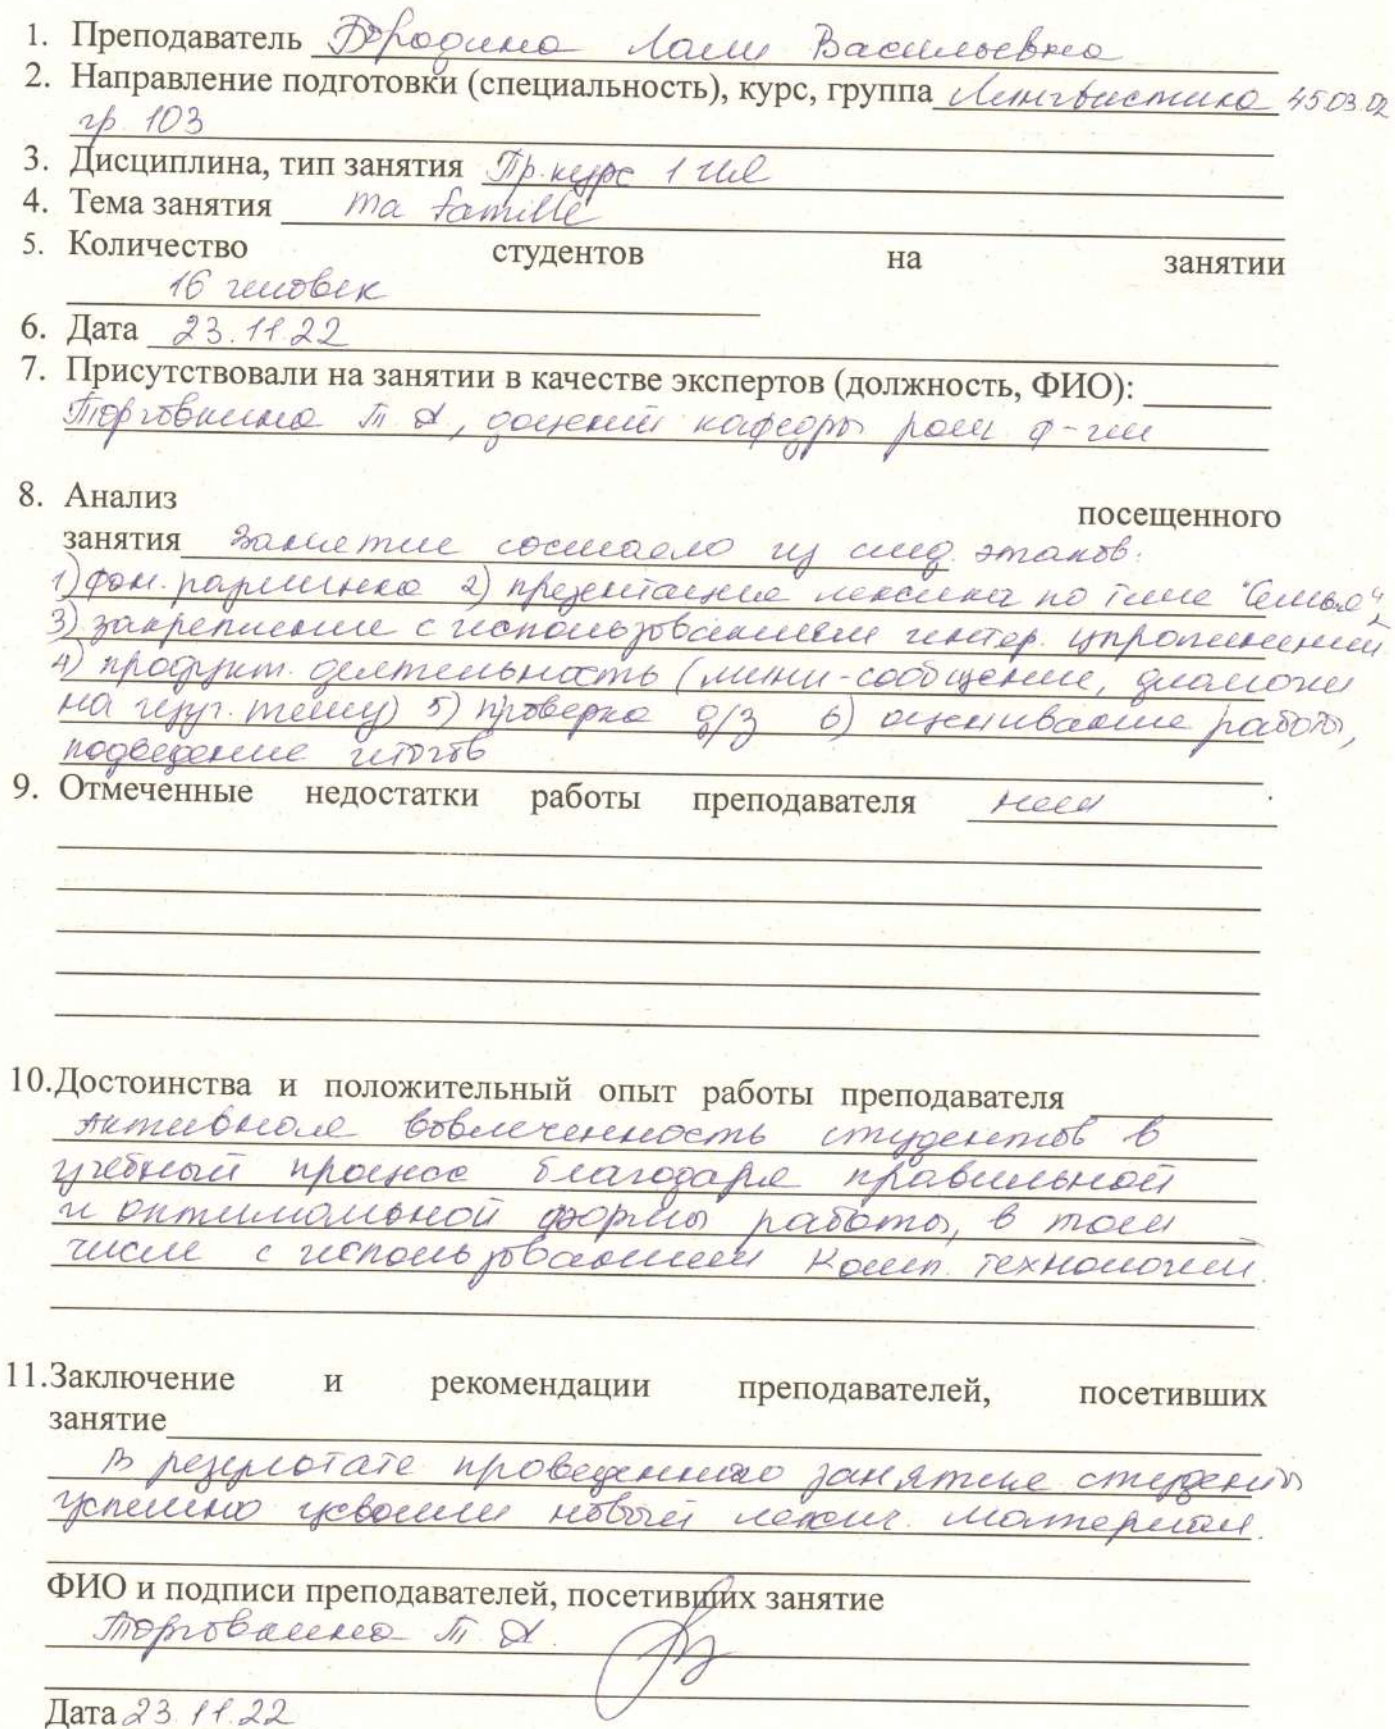 1. Преподаватель Бородина Васильевна
2. Направление подготовки (специальность), курс, группа Лингвистика 45.03.02
гр. 103
3. Дисциплина, тип занятия Пр. курс 1 ИЯ
4. Тема занятия ma famille
5. Количество студентов на занятии
16 человек
6. Дата 23.11.22
7. Присутствовали на занятии в качестве экспертов (должность, ФИО):
Т. А., доцент кафедры ром. ф-гии
8. Анализ посещенного
занятия Занятие состояло из след. этапов:
1) фон. разминка 2) презентация лексики по теме "Семья"
3) закрепление с использованием интер. упражнений
4) продукт. деятельность (мини-сообщение, диалоги
на изуч. тему) 5) проверка д/з 6) оценивание работы,
подведение итогов
9. Отмеченные недостатки работы преподавателя нет
10.Достоинства и положительный опыт работы преподавателя
Активная вовлеченность студентов в
учебный процесс благодаря правильной
и оптимальной формы работы, в том
числе с использованием комп. технологии.
11.Заключение и рекомендации преподавателей, посетивших
занятие
В результате проведенного занятия студенты
успешно усвоили новый лексич. материал.
ФИО и подписи преподавателей, посетивших занятие
Т. А.
Дата 23.11.22